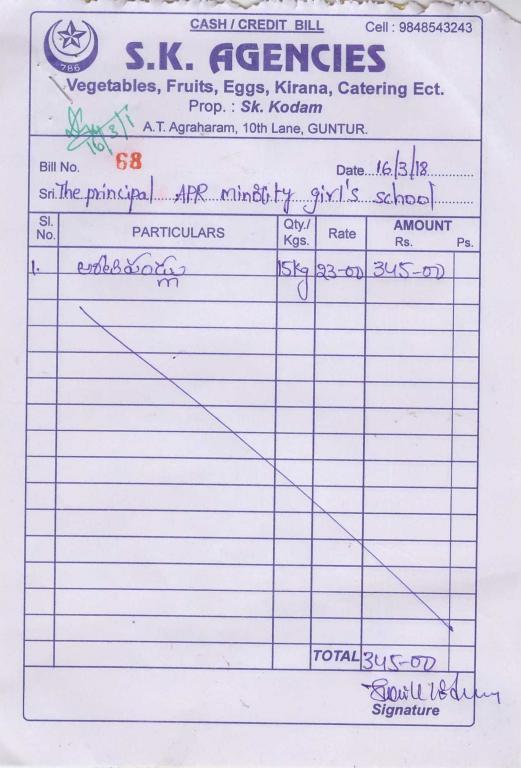 CASH / CREDIT BILL
Cell : 9848543243
786
S.K. AGENCIES
Vegetables, Fruits, Eggs, Kirana, Catering Ect.
Prop. : Sk. Kodam
A.T. Agraharam, 10th Lane, GUNTUR.
16/3/1
Bill No. 68
Date 16/3/18
Sri. The principal APR minority girl's school
Sl. No. PARTICULARS Qty./ Kgs. Rate AMOUNT Rs. Ps.
1. అరటిపండ్లు 15kg 23-00 345-00
TOTAL 345-00
Signature